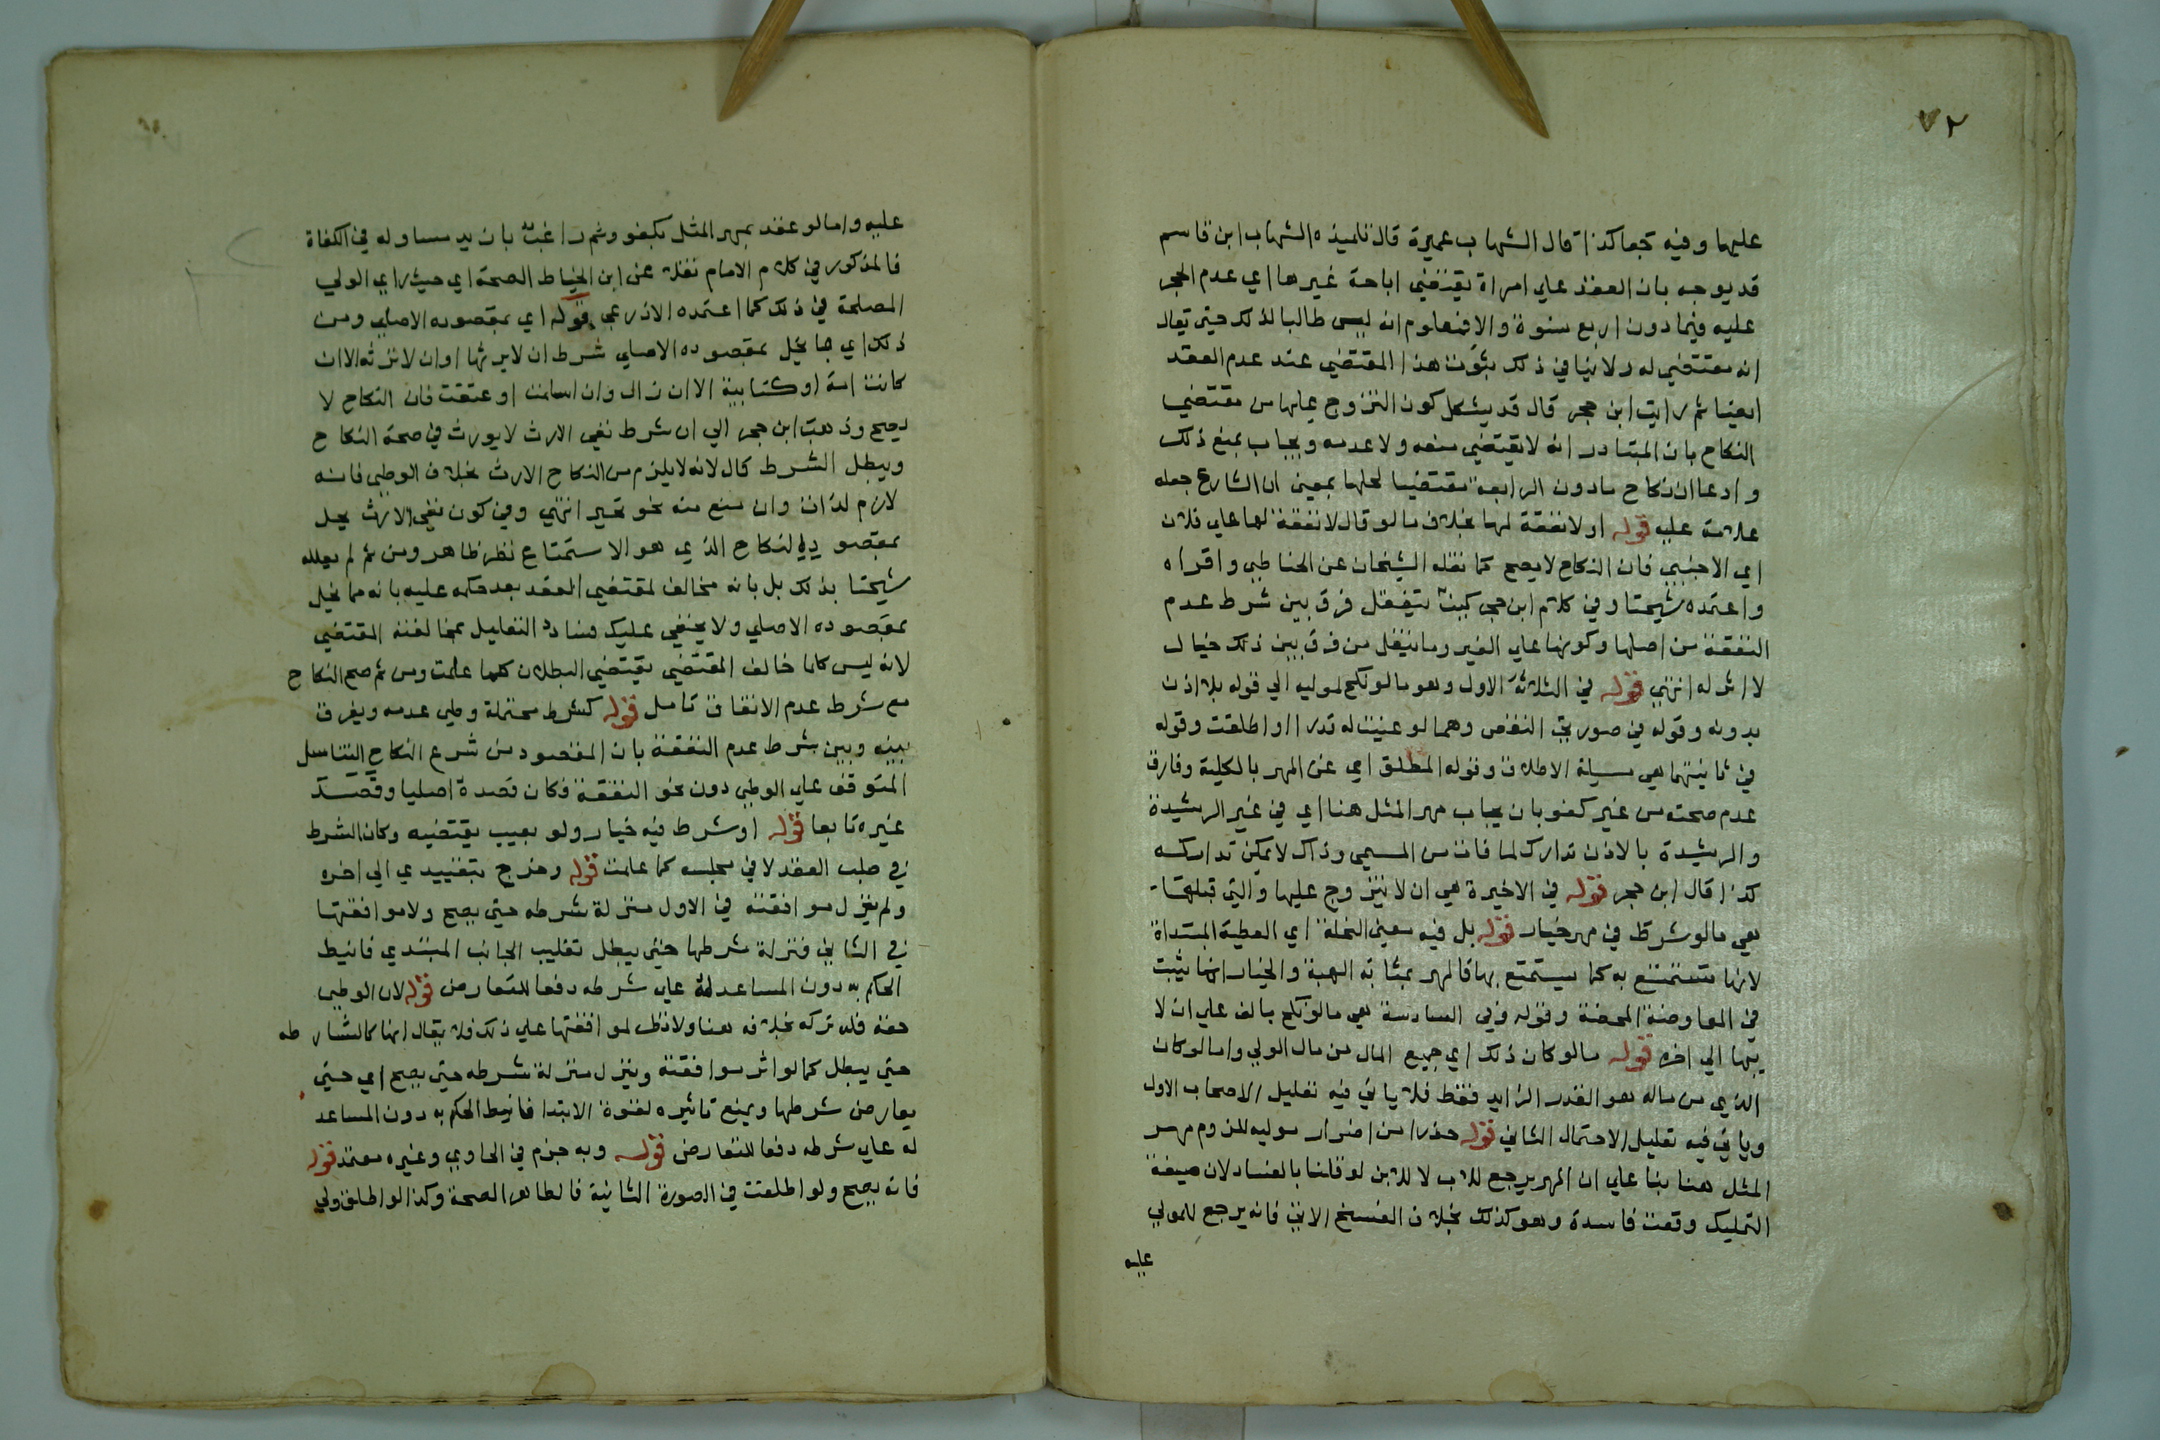 ٧٢
عليها وفيه كجعا كذا قال الشهاب عميرة قال تلميذه الشهاب ابن قاسم
قد يوجه بان العقد علي امراة يقتضي اباحة غيرها اي عدم الحجر
عليه فيما دون اربع سنوة والا فمعلوم انه ليس طالبا لذلك حتى يقال
انه مقتضي له ولا ينافي ذلك بثوت هذا المقتضي عند عدم العقد
ايضا ثم رايت ابن حجر قال قد يشكل كون التزوج عليها من مقتضي
النكاح بان المتبادر انه لا يقتضي منعه ولا عدمه ويجاب بمنع ذلك
وادعا ان نكاح ما دون الرابعة مقتضيا لحلها بمعني ان الشارع جعله
علامة عليه قوله او لا نفقة لها بخلاف ما لو قال لا نفقة لها علي فلان
اي الاجنبي فان النكاح لا يصح كما نقله الشيخان عن الحناطي واقراه
واعتمده شيخنا وفي كلام ابن حجر كيف يتعقل فرق بين شرط عدم
النفقة من اصلها وكونها علي الغير وما يتخيل من فرق بين ذلك خيال
لا اثر له انتهي قوله في الثلاثة الاول وهو ما لو نكح لموليه الي قوله بلا اذن
بدونه وقوله في صورتي النقص وهما لو عينت له قدرا او اطلقت وقوله
في ثانيتهما هي مسيلة الاطلاق وقوله المطلق اي عن المهر بالكلية وفارق
عدم صحته من غير كفو بان يجاب مهر المثل هنا اي في غير الرشيدة
والرشيدة بالاذن تدارك لما فات من المسمي وذاك لا يمكن تداركه
كذا قال ابن حجر قوله في الاخيرة هي ان لا يتزوج عليها والتي قبلها
هي ما لو شرط في مهر خيار قوله بل فيه معني النحلة اي العطية المبتداة
لانها تستمتع به كما يستمتع بها فالمهر بمثابة الهبة والخيار انما يثبت
في المعاوضة المحضة وقوله وفي السادسة هي ما لو نكح بالف علي ان لا
يبها الي اخره قوله ما لو كان ذلك اي جميع المال من مال الولي واما لو كان
الذي من ماله هو القدر الزايد فقط فلا ياتي فيه تعليل الاصحاب الاول
وياتي فيه تعليل الاحتمال الثاني قوله حذرا من اضرار موليه للزوم مهر
المثل هنا بنا علي ان المهر يرجع للاب لا للابن لو قلنا بالفساد لان صيغة
التمليك وقعت فاسدة وهو كذلك بخلاف الفسخ الاتي فانه يرجع للمولي
عليه
عليه واما لو عقد بمهر المثل بكفو وثم راغب بازيد مساو له في الكفاة
فالمذكور في كلام الامام نقلا عن ابن الخياط الصحة اي حيث راي الولي
المصلحة في ذلك كما اعتمده الاذرعي قوله اي بمقصوده الاصلي ومن
ذلك اي ما يخل بمقصوده الاصلي شرط ان لا يرثها او ان لا ترثه الا ان
كانت امة او كتابية الا ان زال وان اسلمت او عتقت فان النكاح لا
يصح وذهب ابن حجر الي ان شرط نفي الارث لا يورث في صحة النكاح
ويبطل الشرط كال لانه لا يلزم من النكاح الارث بخلاف الوطي فانه
لازم لذاته وان منع منه نحو تحير انتهي وفي كون نفي الارث يخل
بمقصود النكاح الذي هو الاستمتاع نظر ظاهر ومن ثم لم يعلله
شيخنا بذلك بل بانه مخالف لمقتضي العقد بعد حكمه عليه بانه مما يخل
بمقصوده الاصلي ولا يخفي عليك فساد التعليل بمخالفته المقتضي
لانه ليس كلما خالف المقتضي يقتضي البطلان كلها علمت ومن ثم صح النكاح
مع شرط عدم الانفاق تامل قوله كشرط محتملة وطي عدمه ويفرق
بينه وبين شرط عدم النفقة بان المقصود من شرع النكاح التناسل
المتوقف علي الوطي دون نحو النفقة فكان قصدة اصليا وقصد
غيره تابعا قوله او شرط فيه خيار ولو بعيب يقتضيه وكان الشرط
في صلب العقد لا في مجلسه كما علمت قوله وخرج بتقييدي الي اخره
ولم ينزل موافقته في الاول منزلة شرطه حتى يصح ولا موافقتها
في الثاني منزلة شرطها حتي يبطل تغليب الجانب المبتدي فانيط
الحكم به دون المساعد له علي شرطه دفعا للتعارض قوله لان الوطي
حقه فله تركه بخلافه هنا ولا نظر لموافقتها علي ذلك فلا يقال انها كالشارطه
حتي يبطل كما لو اثر موافقته وينزل منزلة شرطه حتى يصح اي حتي
يعارض شرطها ويمنع تاثيره لقوة الابتدا فانيط الحكم به دون المساعد
له علي شرطه دفعا للتعارض قوله وبه جزم في الحاوي وغيره معتمد قوله
فانه يصح ولو اطلقت في الصورة الثانية فالظاهر الصحة وكذا لو اطلق ولي